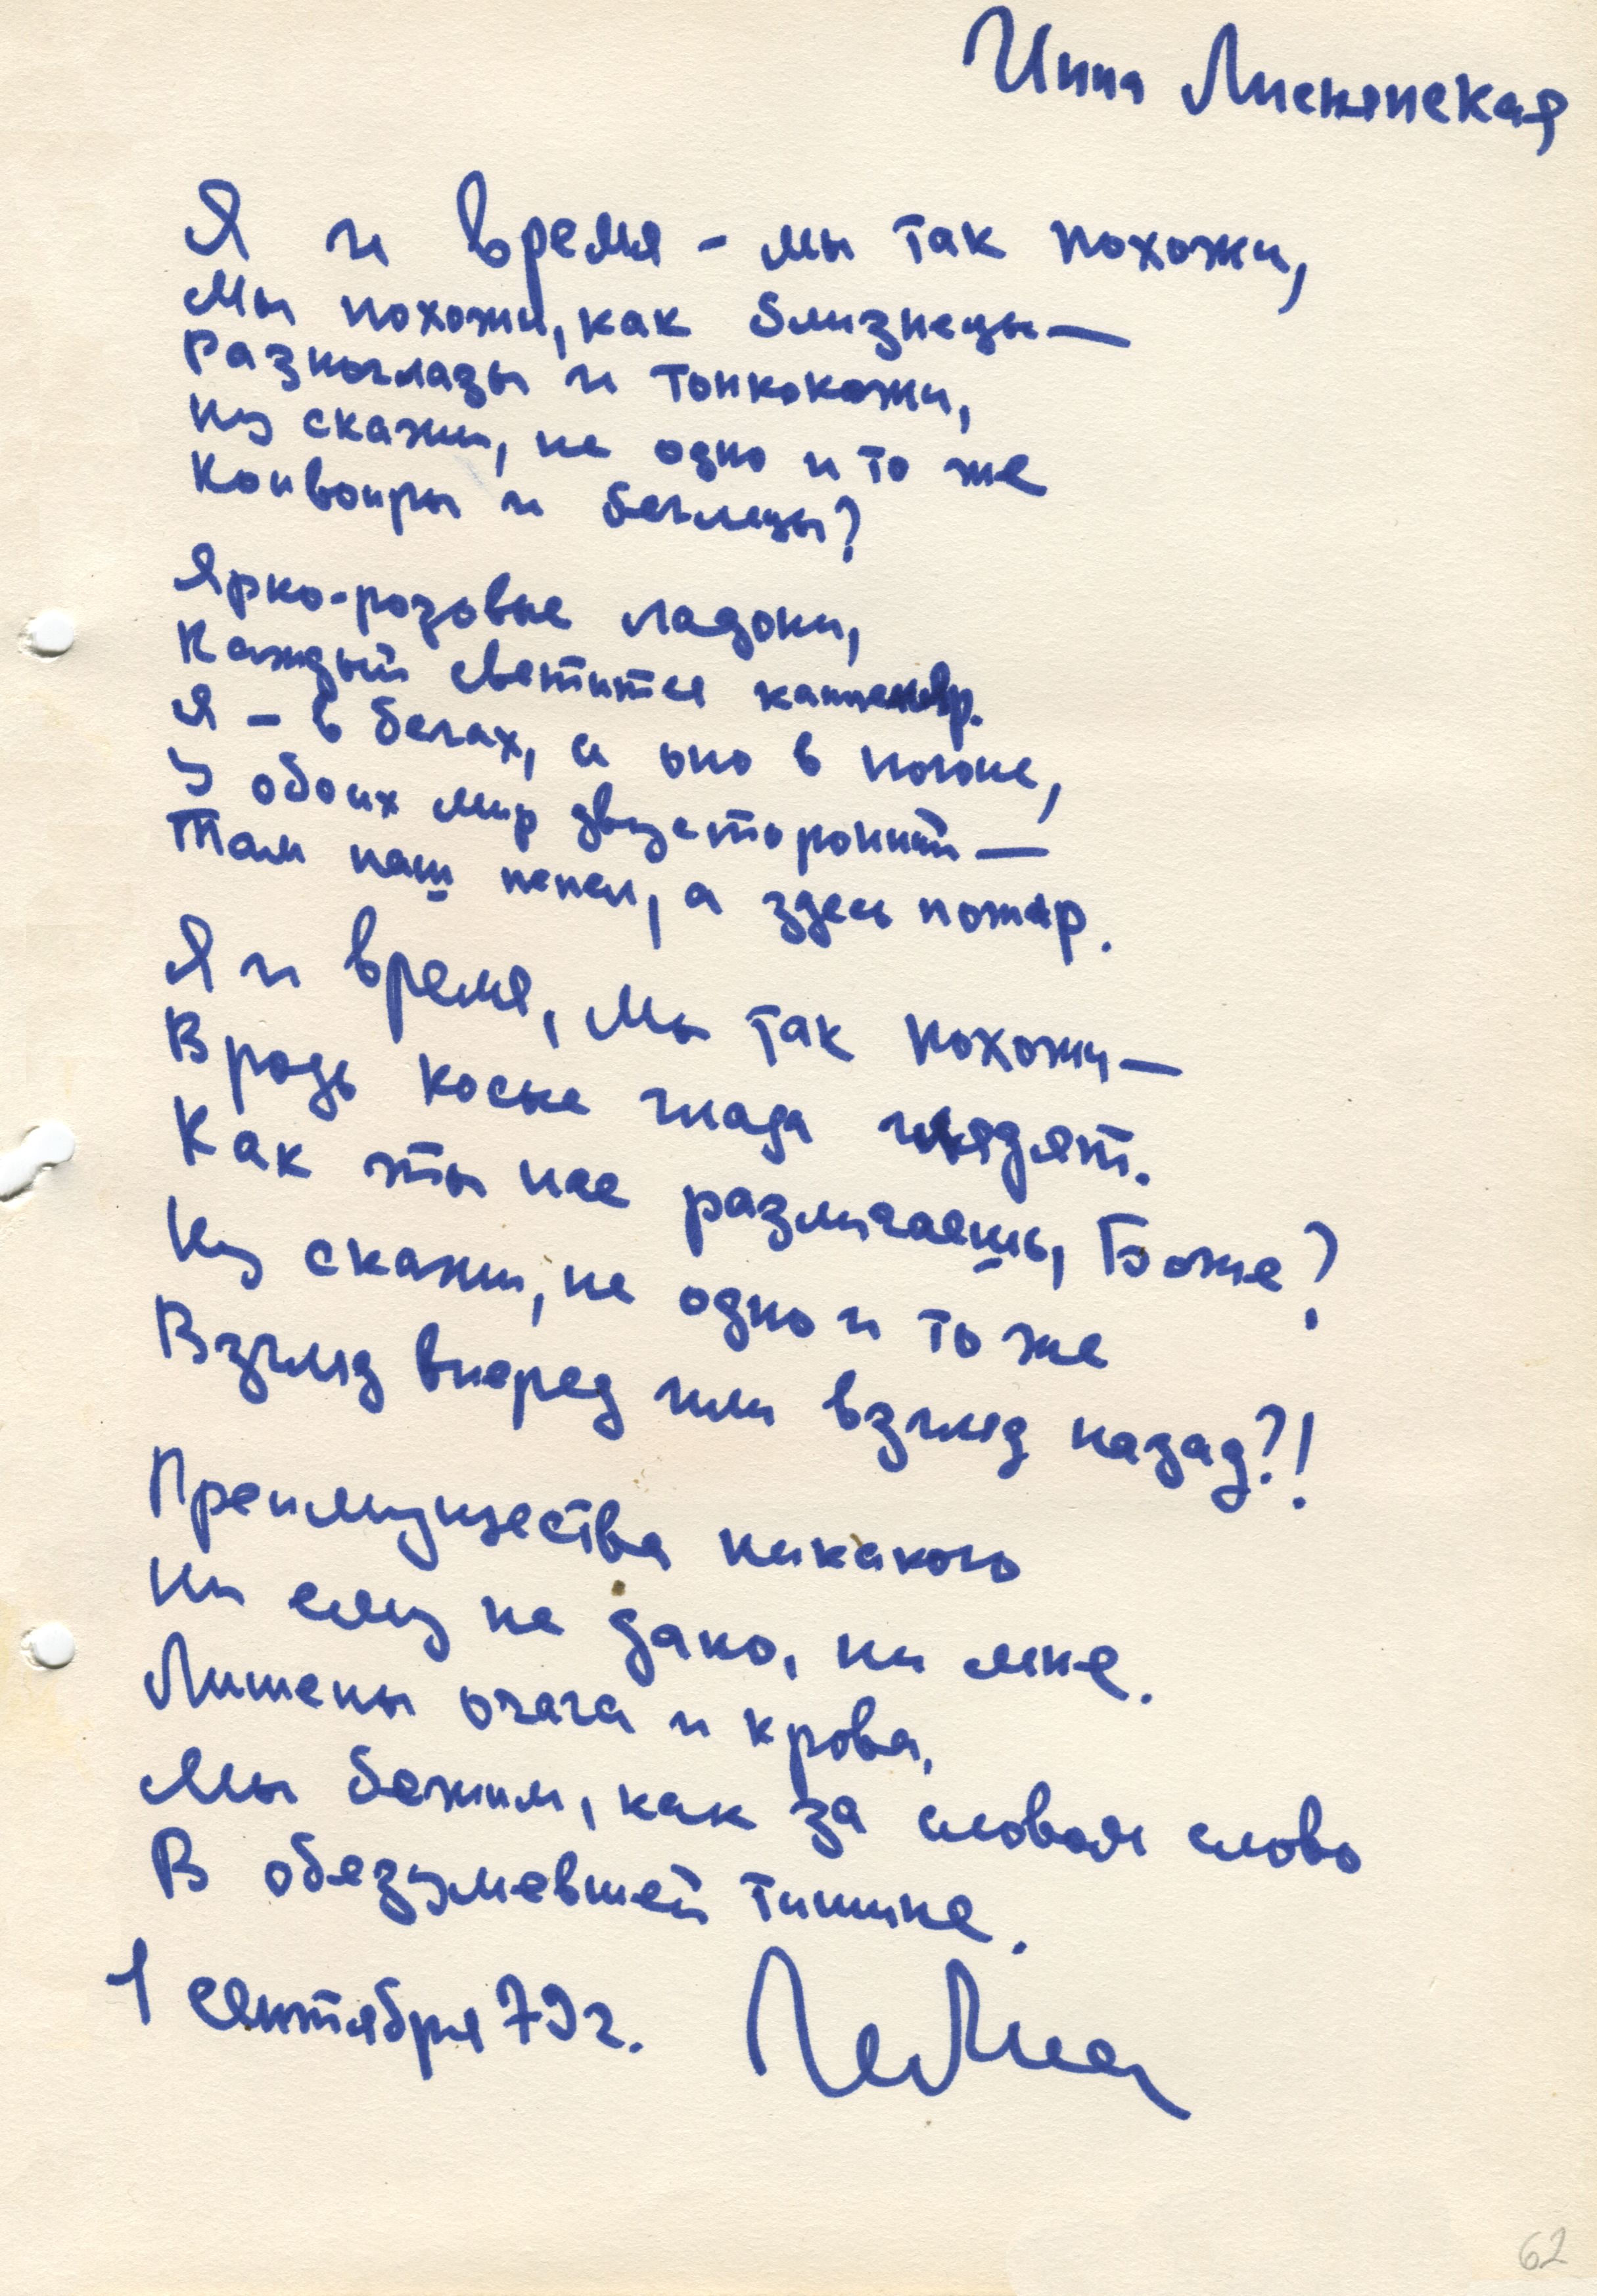 Инна Лиснянская
Я и время - мы так похожи,
Мы похожи, как близнецы —
Разноглазы и тонкокожи,
Ну скажи, не одно и то же
Конвоиры и беглецы?
Ярко-розовые ладони,
Каждый светится капилляр.
Я - в бегах, а оно в погоне,
У обоих мир двусторонний —
Там наш пепел, а здесь пожар.
Я и время, мы так похожи —
Врозь косые глаза глядят.
Как ты нас различаешь, Боже?
Ну скажи, не одно и то же
Взгляд вперед или взгляд назад?!
Преимущества никакого
Ни ему не дано, ни мне.
Лишены очага и крова,
Мы бежим, как за словом слово
В обезумевшей тишине.
1 сентября 79 г.
62